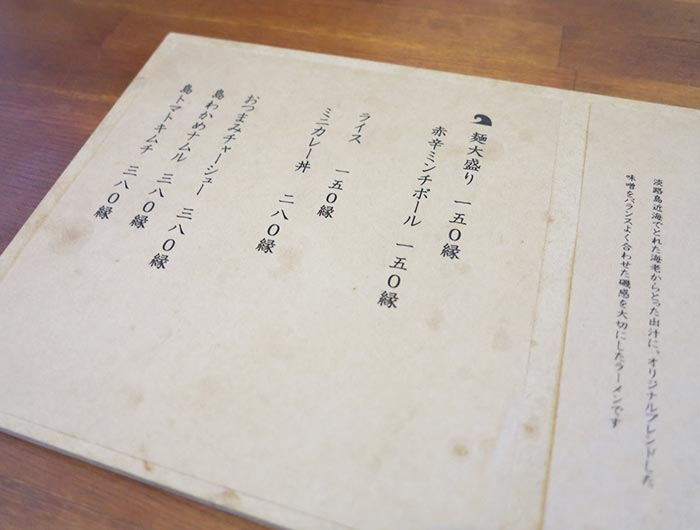 淡路島近海でとれた海老からとった出汁に、オリジナルブレンドした
味噌をバランスよく合わせた磯感を大切にしたラーメンです
麺大盛り 一五〇縁
赤辛ミンチボール 一五〇縁
ライス 一五〇縁
ミニカレー丼 二八〇縁
おつまみチャーシュー 三八〇縁
島わかめナムル 三八〇縁
島トマトキムチ 三八〇縁